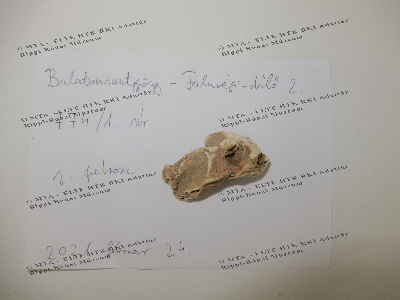 © MTA - ELTE HTK RKI Adattár
Rippl-Rónai Múzeum
© MTA - ELTE HTK RKI Adattár
Rippl-Rónai Múzeum
Balatonszentgyörgy - Faluvégi-dűlő 2.
© MTA - ELTE HTK RKI Adattár
Rippl-Rónai Múzeum
© MTA - ELTE HTK RKI Adattár
Rippl-Rónai Múzeum
774/1 sír
j.
© MTA - ELTE HTK RKI Adattár
Rippl-Rónai Múzeum
© MTA - ELTE HTK RKI Adattár
Rippl-Rónai Múzeum
24.
© MTA - ELTE HTK RKI Adattár
Rippl-Rónai Múzeum
© MTA - ELTE HTK RKI Adattár
Rippl-Rónai Múzeum